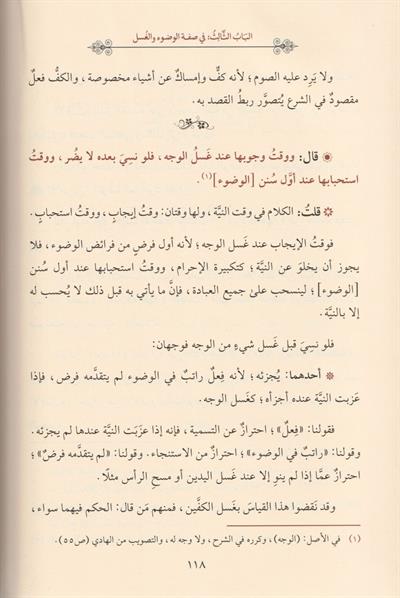 البَابُ الثَّالثُ: في صفة الوضوء والغُسل
ولا يَرِد عليه الصوم؛ لأنه كفٌّ وإمساكٌ عن أشياء مخصوصة، والكفُّ فعلٌ
مقصودٌ في الشرع يُتصوَّر ربطُ القصد به.
قال: ووقتُ وجوبها عند غَسلُ الوجه، فلو نسِيَ بعده لا يضُر، ووقتُ
استحبابها عند أوَّل سُنن [الوضوء](١).
قلتُ: الكلام في وقت النيَّة، ولها وقتان: وقتُ إيجابٍ، ووقتُ استحبابٍ.
فوقتُ الإيجاب عند غَسل الوجه؛ لأنه أول فرضٍ من فرائض الوضوء، فلا
يجوز أن يخلوَ عن النيَّة؛ كتكبيرة الإحرام، ووقتُ استحبابها عند أول سُنن
[الوضوء]؛ لينسحب على جميع العبادة، فإنَّ ما يأتي به قبل ذلك لا يُحسب له
إلا بالنيَّة.
فلو نسِيَ قبل غَسل شيءٍ من الوجه فوجهان:
أحدهما: يُجزئه؛ لأنه فِعلٌ راتبٌ في الوضوء لم يتقدَّمه فرض، فإذا
عَزبت النيَّة عنده أجزأه؛ كغَسل الوجه.
فقولنا: «فِعلٌ»؛ احترازٌ عن التسمية، فإنه إذا عزَبَت النيَّة عندها لم يجزئه.
وقولنا: «راتبٌ في الوضوء»؛ احترازٌ من الاستنجاء. وقولنا: «لم يتقدَّمه فرضٌ»؛
احترازٌ عمَّا إذا لم ينوِ إلا عند غَسل اليدين أو مسح الرأس مثلًا.
وقد نَقضوا هذا القياسَ بغَسل الكفَّين، فمنهم مَن قال: الحكم فيهما سواء،
(١) في الأصل: (الوجه)، وكرره في الشرح، ولا وجه له، والتصويب من الهادي (ص٥٥).
١١٨